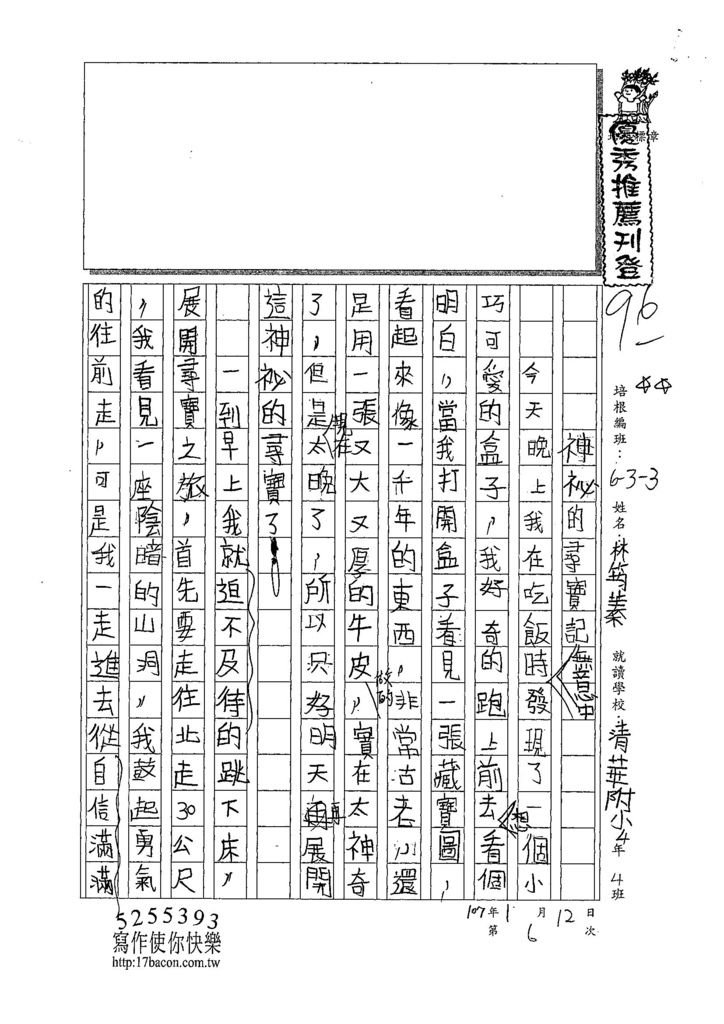 優秀推薦刊登
96
培根編班：6-3-3 姓名：林筠蓁 就讀學校：清華附小4年4班
107年1月12日
第6次
神祕的尋寶記
今天晚上我在吃飯時無意中發現了一個小
巧可愛的盒子，我好奇的跑上前去想看個
明白，當我打開盒子看見一張藏寶圖，
看起來像一千年的東西，非常古老，還
是用一張又大又厚的牛皮做的，實在太神奇
了，但是現在太晚了，所以只好明天再展開
這神祕的尋寶了！
一到早上我就迫不及待的跳下床，
展開尋寶之旅，首先要走往北走30公尺
，我看見一座陰暗的山洞，我鼓起勇氣
的往前走，可是我一走進去從自信滿滿
5255393
寫作使你快樂
http:17bacon.com.tw